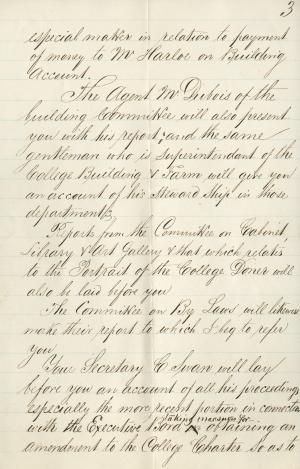 3
especial maker in relation to payment
of money to Mr Harloe on Building
Account.
The Agent Mr Dubois of the
building Committee will also present
you with his report; and the same
gentleman who is Superintendant of the
College Building & Farm will give you
an account of his Steward Ship in those
departments,
Reports from the Committee on Cabinet
Library & Art Gallery & that which relates
to the Portrait of the College Doner will
also be laid before you
The Committee on Bye Laws will likewise
make their report to which I beg to refer
you.
Your Secretary C Swan will lay
before you an account of all his proceedings
especially the more recent portion in connection
taking measures for
with the Executive Board in obtaining an
amendment to the College Charter So as to